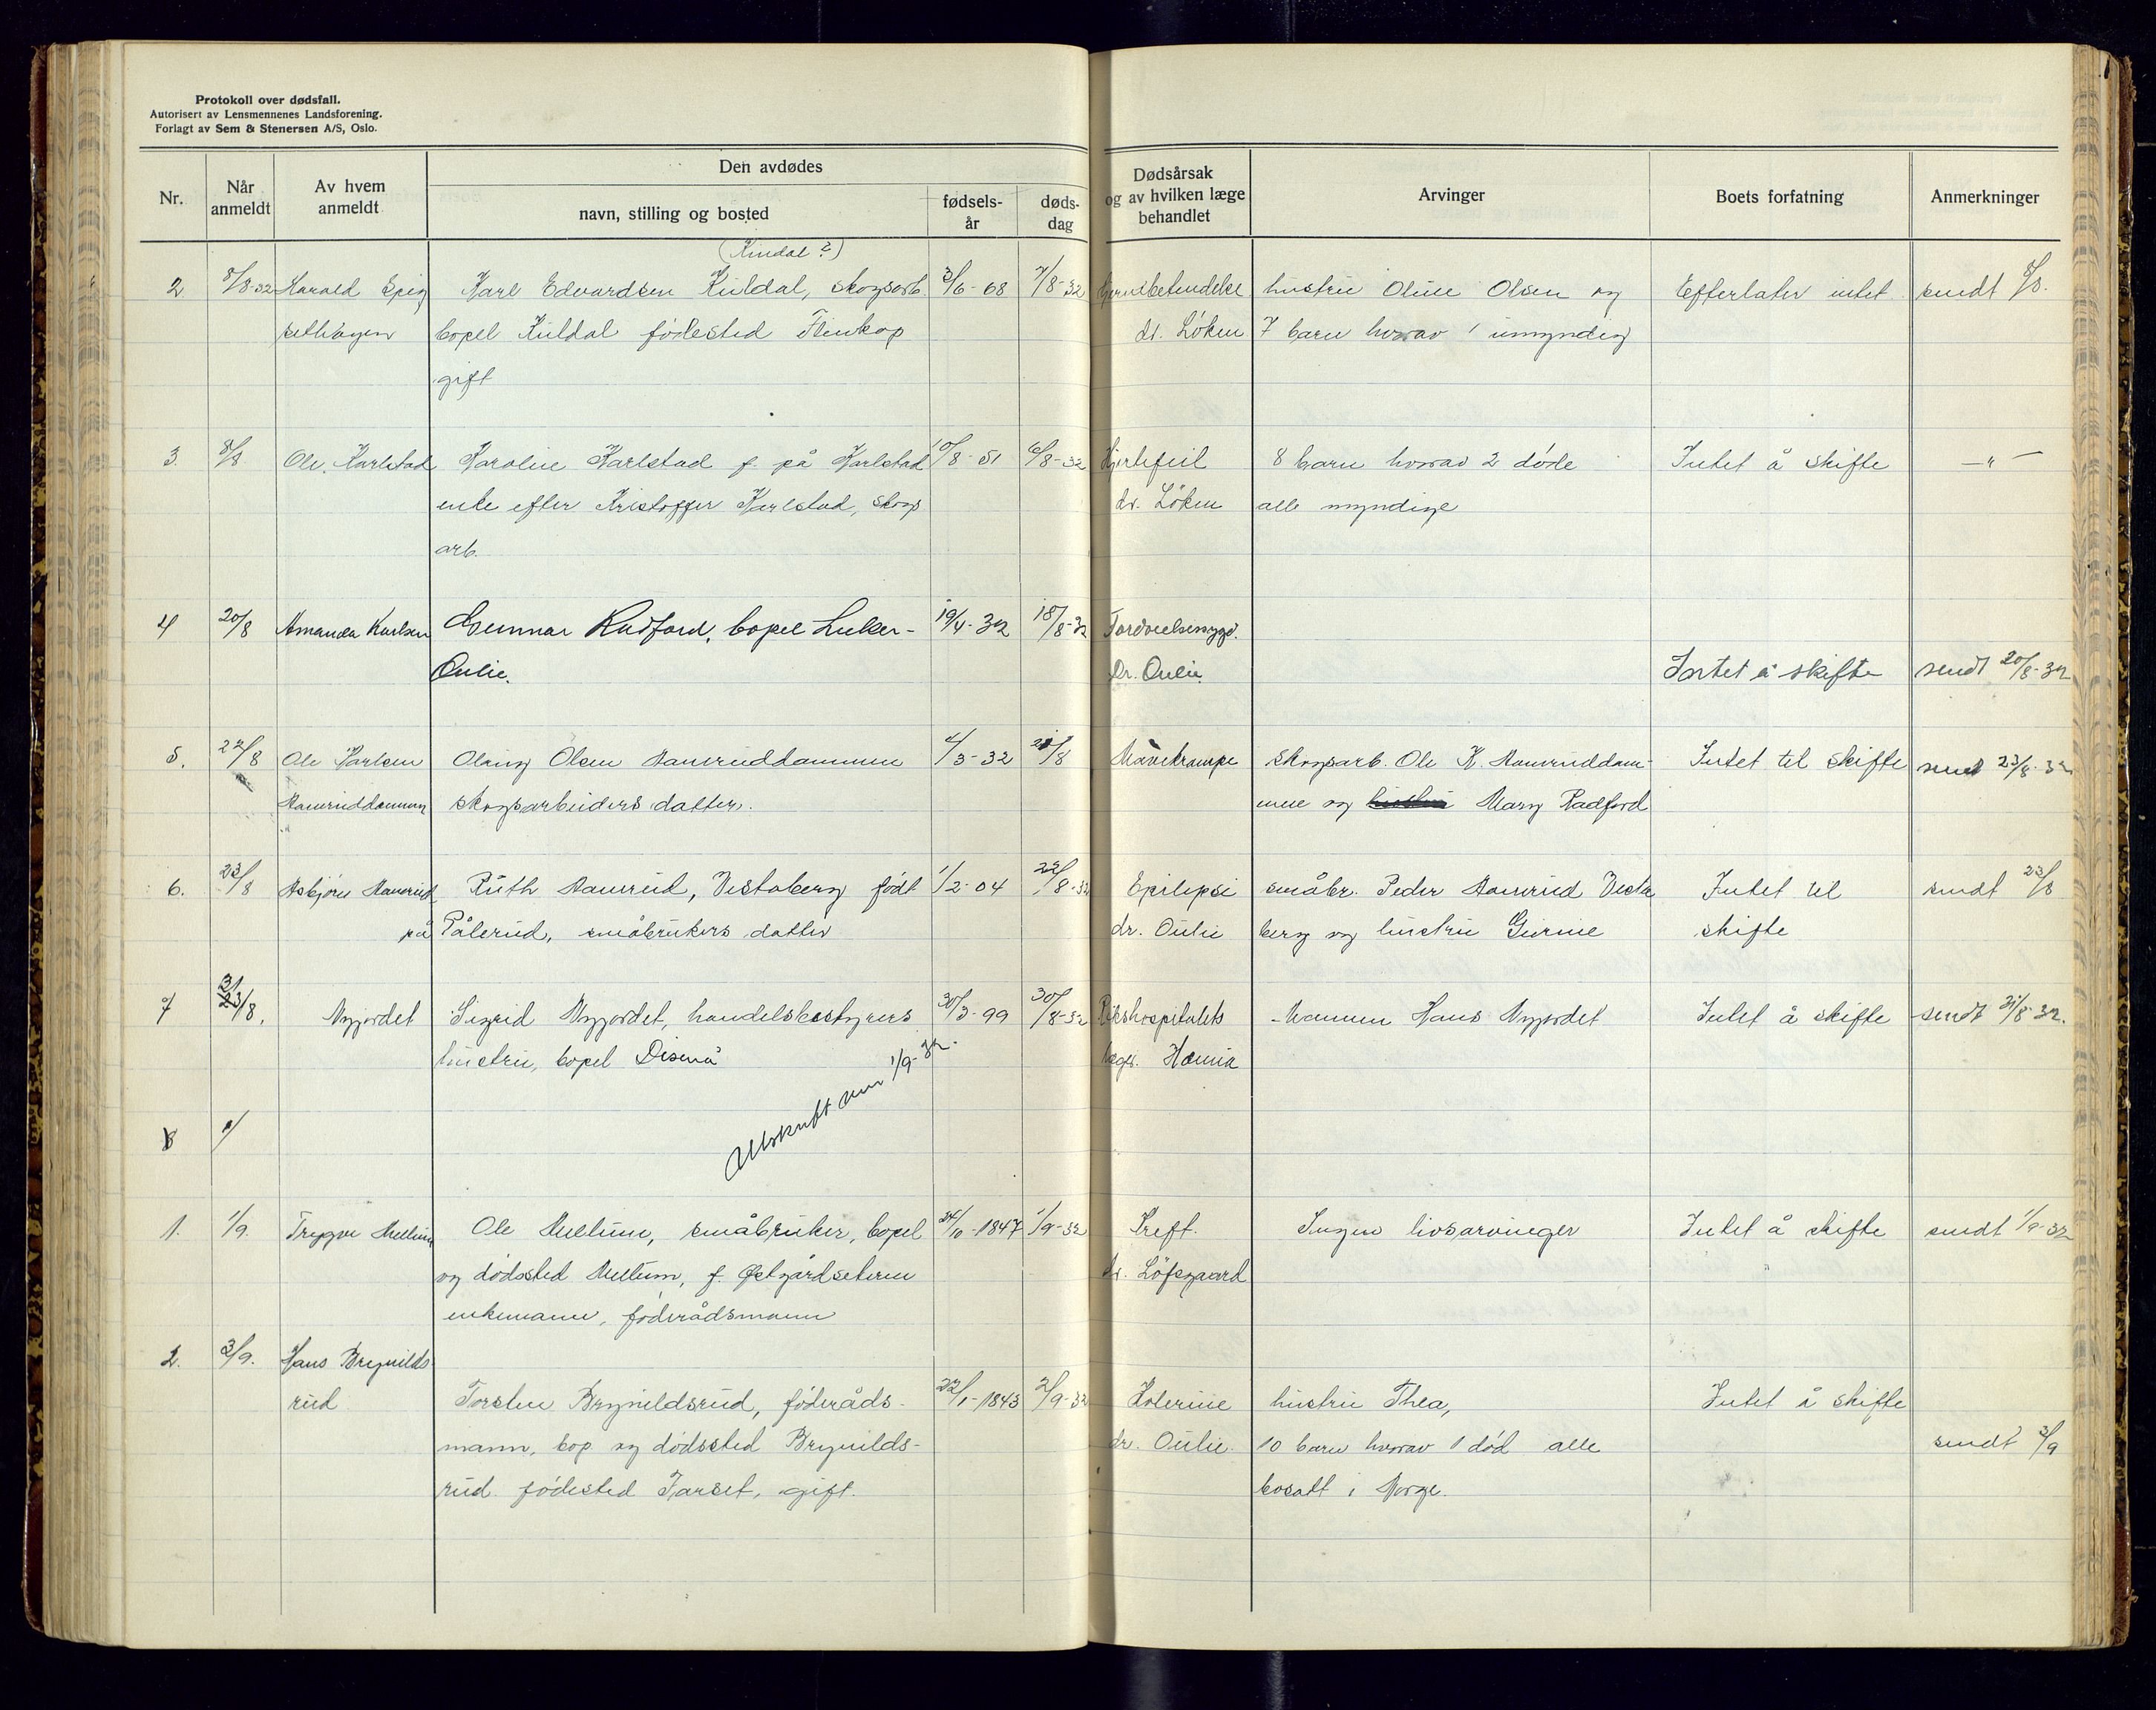 Protokoll over dødsfall.
Autorisert av Lensmennenes Landsforening.
Forlagt av Sem & Stenersen A/S, Oslo.
Nr. Når anmeldt Av hvem anmeldt Den avdødes navn, stilling og bosted fødsels-år døds-dag Dødsårsak og av hvilken læge behandlet Arvinger Boets forfatning Anmerkninger
(Kindal?)
2 8/8-32 Harald Karl Edvardsen Kuldal, skogsarb. 3/6-68 7/8-32 hustru Oline Olsen og Efterlater intet sendt 8/8.
bopel Kuldal fødested Flenkop dr. Löken 7 barn hvorav 1 umyndig
gift
3. 8/8 Ole Karlstad Karoline Karlstad f. på Karlstad 10/8-51 6/8-32 Hjertefeil 8 barn hvorav 2 døde Intet å skifte —"—
enke efter Kristoffer Karlstad, skogs dr. Löken alle myndige
arb.
4 20/8 Amanda Karlsen Gunnar Radford, bopel Luker- 19/4-32 18/8-32 Fordøielsessygd.
Oulie. Dr. Oulie. Intet å skifte sendt 20/8-32
5. 22/8 Ole Karlsen Olaug Olsen Hameruddammen 4/3-32 /8 Mavekrampe skogsarb. Ole K. Hameruddam- Intet til skifte sendt 23/8-32
Hameruddammen skogsarbeiders datter. mene og hustru Mary Radford
6. 23/8 Asbjørn Hamerud Ruth Hamerud, Vestaberg født 1/2-04 22/8-32 Epilepsi småbr. Peder Hamerud Vesta Intet til sendt 23/8
på Pålerud, småbrukers datter dr. Oulie berg og hustru Gurine skifte
7 31/8. Nygjordet Sigrid Nygjordet, handelsbestyrers 30/3-99 30/8-32 Rikshospitalets Mannen Hans Nygjordet Intet å skifte sendt 31/8-32.
hustru, bopel Disenå læger.
Utskrift 1/9-32.
8
1. 1/9. Trygve Mellum Ole Mellum, småbruker, bopel 24/10-1847 1/9-32 Kreft. Ingen livsarvinger Intet å skifte sendt 1/9-32
og dødssted Mellum, f. Østgårdseteren dr. Löfsgaard
enkemann, føderådsmann
2. 3/9. Hans Brynilds
rud Torsten Brynildsrud, føderåds- 22/1-1843 2/9-32 Kolerine hustru Thea, Intet å skifte
mann, bop og dødssted Brynilds- dr. Oulie. 10 barn hvorav 1 død alle sendt 3/9
rud. fødested Tarset, gift. bosatt i Norge.